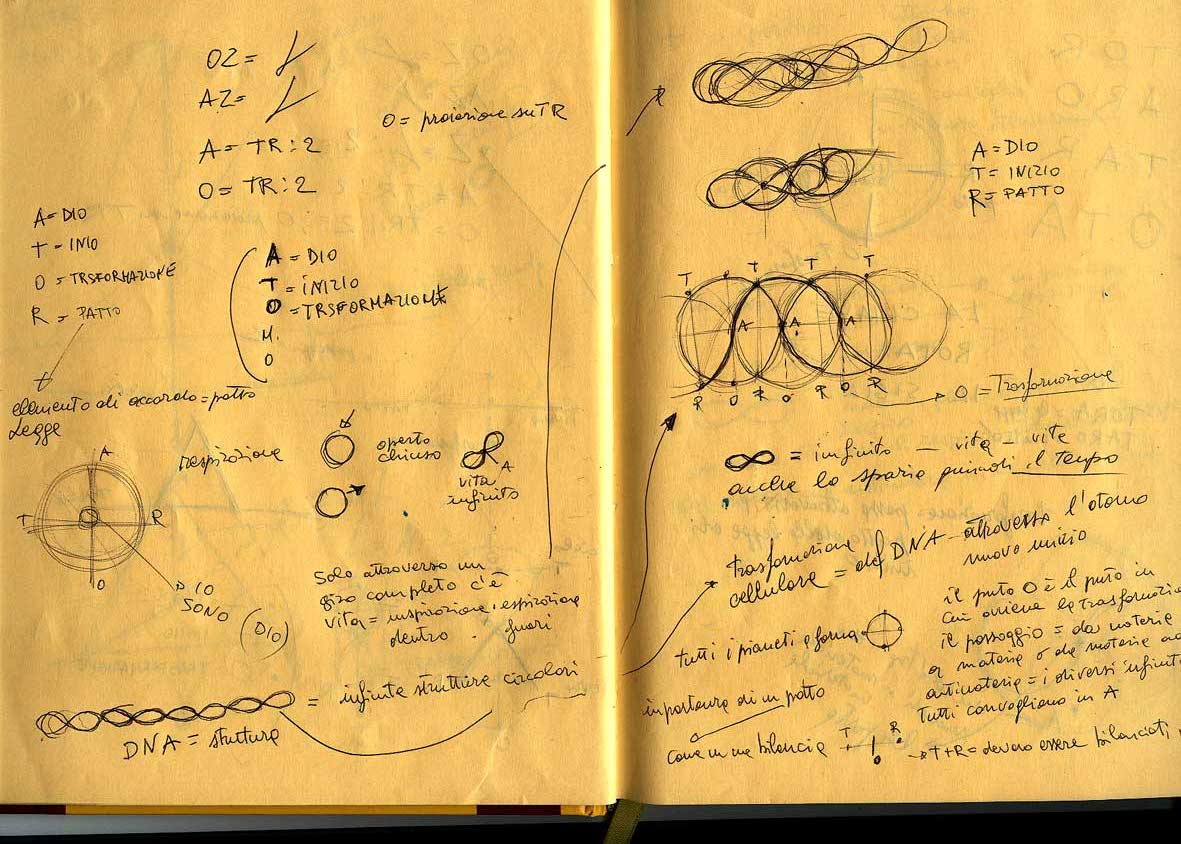 OZ =
AZ =
A = TR : 2
O = TR : 2
O = proiezione su TR
A = DIO
T = INIO
O = TRSFORMAZIONE
R = PATTO
A = DIO
T = INIZIO
O = TRSFORMAZIONE
M.
O
elemento di accordo = patto
Legge
respirazione
aperto
chiuso
A
vita
infinito
A
T R
O
IO
SONO (DIO)
Solo attraverso un
giro completo c'è
vita = inspirazione . espirazione
dentro . fuori
= infinite strutture circolari
DNA = struttura
A = DIO
T = INIZIO
R = PATTO
T T T T
A A A
R O R O R O R
O = Trasformazione
∞ = infinito — vita = vita
anche lo spazio quindi il Tempo
trasformazione
cellulare = del DNA attraverso l'atomo
nuovo inizio
tutti i pianeti e forma
il puto O è il puto in
cui avviene la trasformazio
il passaggio = da materia
a materia o da materia ad
antimateria = i diversi infiniti
tutti convogliano in A
importanza di un patto
come in una bilancia T R
O
T + R = devono essere bilanciati